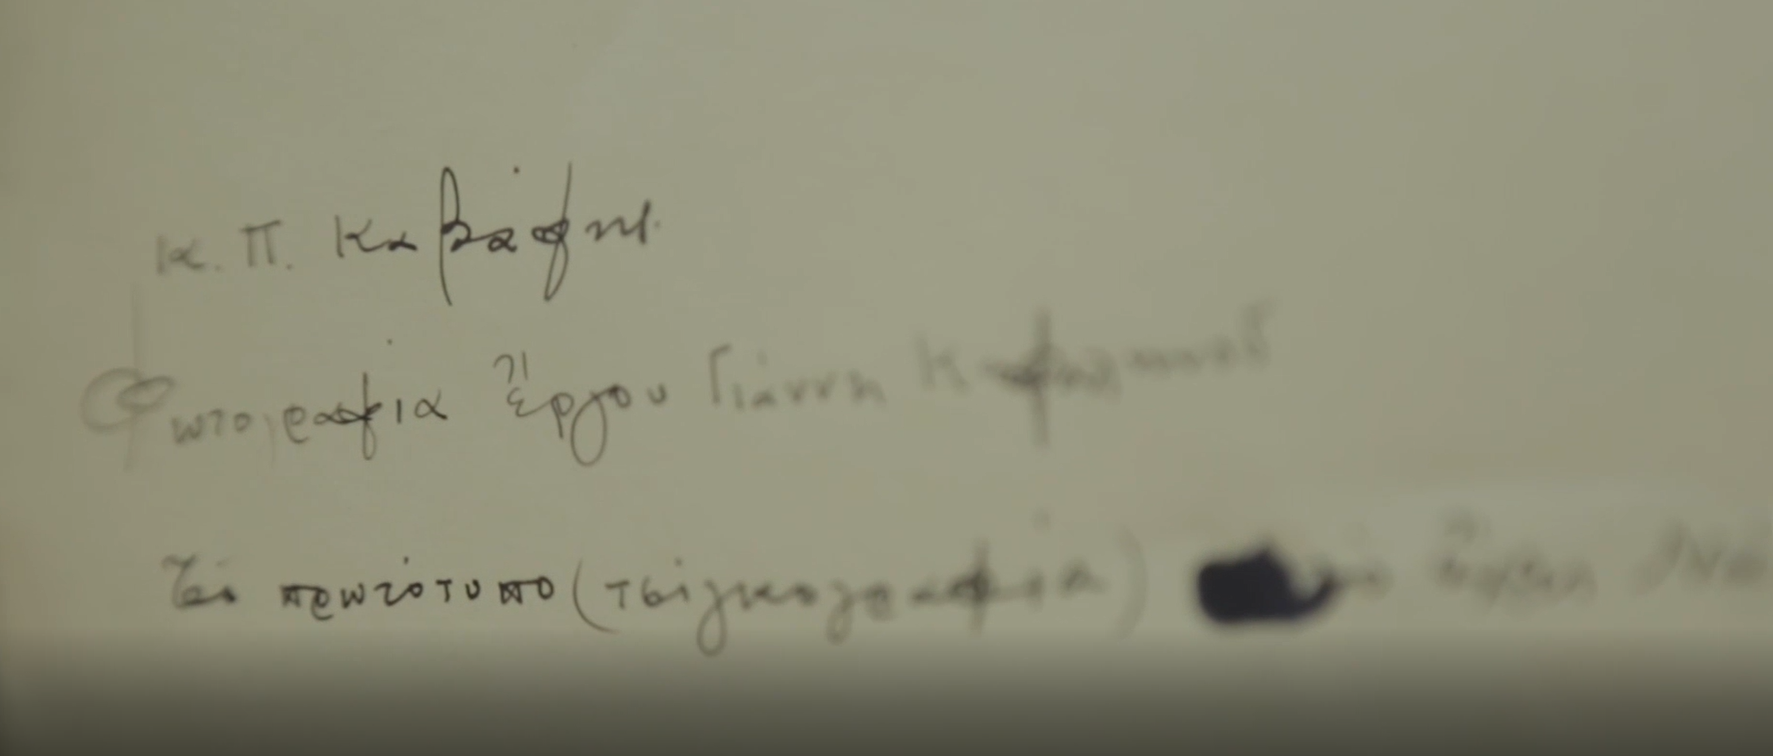 Κ. Π. Καβάφης.
Φωτογραφία ἔργου Γιάννη Κεφαλληνοῦ
Τὸ πρωτότυπο (τσιγκογραφία)